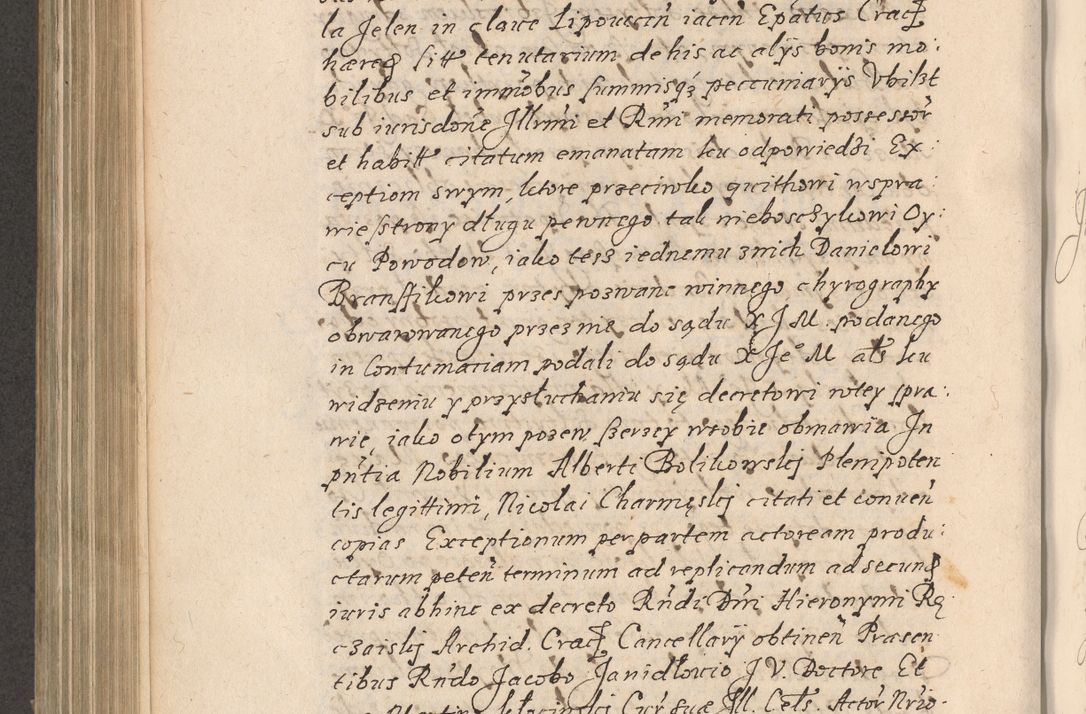 la Jelen in clave Lipovecen̄ iacen̄ Ep̄atus Crac̄
hæred sitt tenutarium de his ac alÿs bonis mo:
bilibus et immōbus summisq́ʒ peccuniarÿs Vbilꝫt
sub iurisdōne Jllrm̄i et Rm̄i memorati possessōr
et habitt citatum emanatam ku odpowiedzi Ex:
ceptiom swym, ktore przeciwko quithowi wspra:
wie strony długu pewnego tak nieboszczykowi Oy:
cu Powodow, iako tesz iednemu znich Danielowi
Branffikowi przes pozwane winnego chyrography
obwarowanego przeznie do sądu X J M. podanego
in Contumaciam podali do sądu X Je° M als ku
widzeniu y przysłuchaniu się decretowi wtey spra:
wię, iako otym pozew szerzey wsobie obmawia Jn
pn̄tia Nobilium Alberti Bolikowskj Plenipoten
tis legittimi, Nicolai Charmęskj citati et conven̄
copias Exceptionum per partem actoream produ:
ctarum peten̄ terminum ad replicandum ad secund
iuris abhinc ex decreto Rn̄di Dn̄i Hieronymi Rę
czaiskj Archid. Crac̄ Cancellarÿ obtinen̄ Præsen
tibus Rn̄do Jacobo Janidłovio J V. Doctore Et